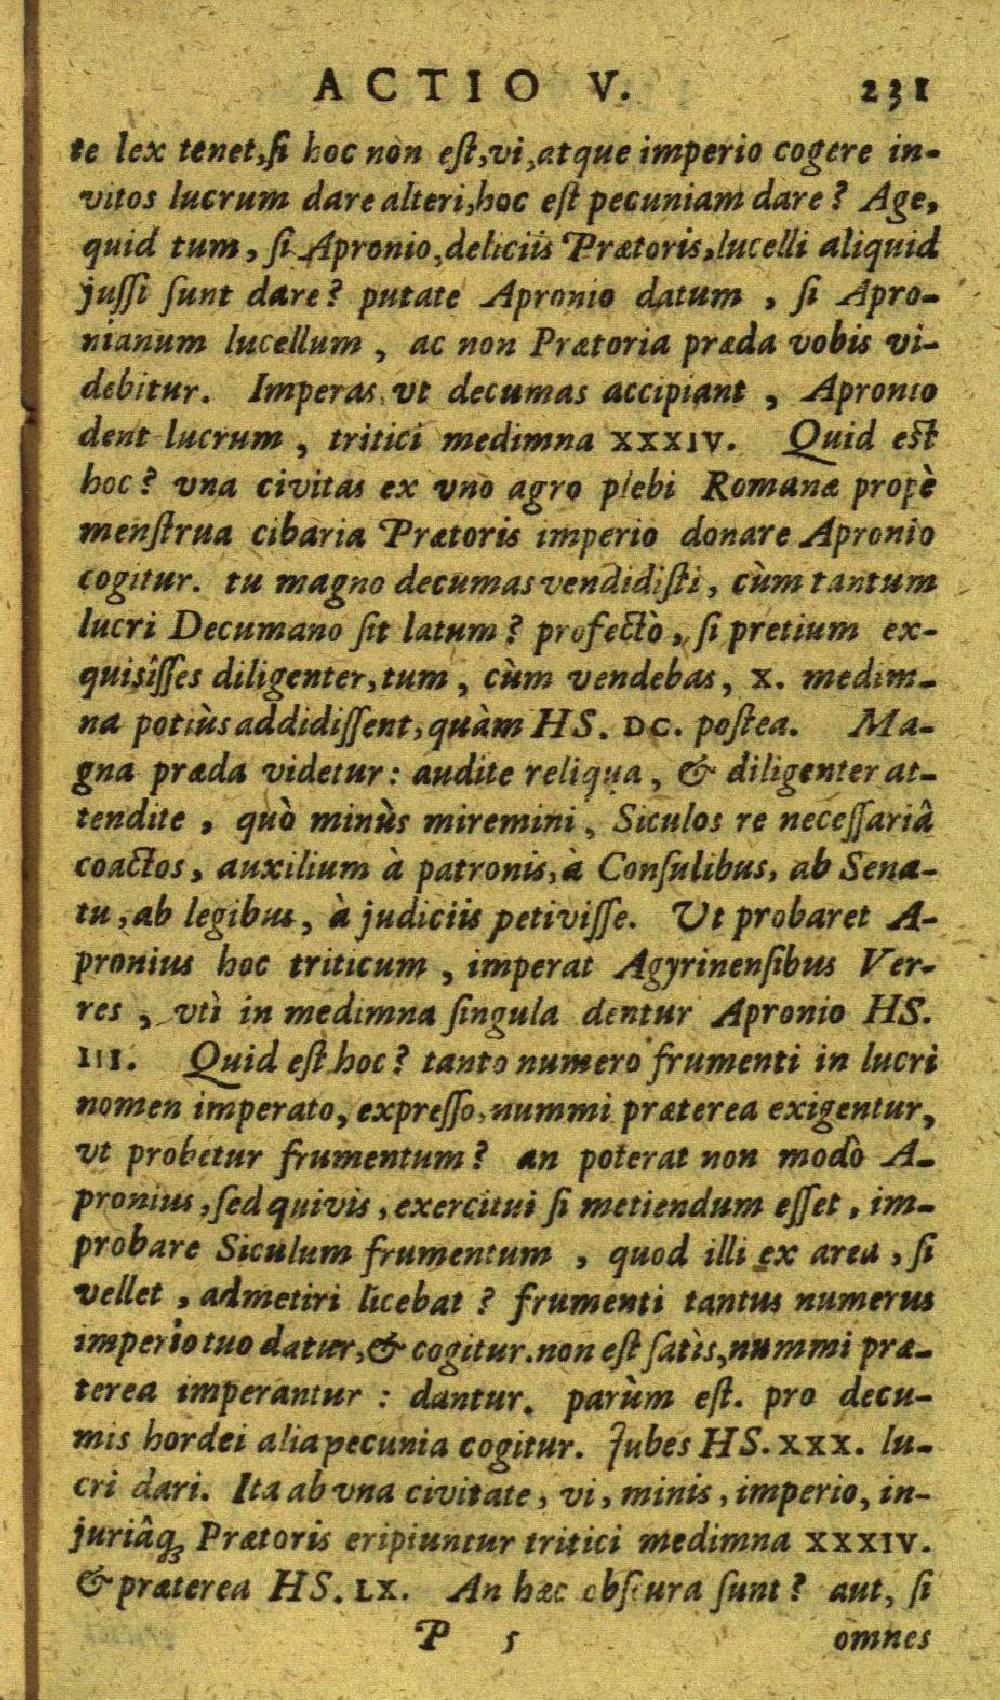 ACTIO V. 231
te lex tenet, si hoc non est, vi, atque imperio cogere in-
vitos lucrum dare alteri, hoc est pecuniam dare? Age,
quid tum, si Apronio, deliciis Prætoris, lucelli aliquid
jussi sunt dare? putate Apronio datum, si Apro-
nianum lucellum, ac non Prætoria præda vobis vi-
debitur. Imperas vt decumas accipiant, Apronio
dent lucrum, tritici medimna XXXIV. Quid est
hoc? vna civitas ex vno agro plebi Romanæ propè
menstrua cibaria Prætoris imperio donare Apronio
cogitur. tu magno decumas vendidisti, cùm tantum
lucri Decumano sit latum? profectò, si pretium ex-
quisîsses diligenter, tum, cùm vendebas, X. medim-
na potiùs addidissent, quàm HS. DC. postea. Ma-
gna præda videtur: audite reliqua, & diligenter at-
tendite, quò minùs miremini, Siculos re necessariâ
coactos, auxilium à patronis, à Consulibus, ab Sena-
tu, ab legibus, à judiciis petivisse. Ut probaret A-
pronius hoc triticum, imperat Agyrinensibus Ver-
res, vtì in medimna singula dentur Apronio HS.
III. Quid est hoc? tanto numero frumenti in lucri
nomen imperato, expresso, nummi præterea exigentur,
vt probetur frumentum? an poterat non modò A-
pronius, sed quivis, exercitui si metiendum esset, im-
probare Siculum frumentum, quod illi ex area, si
vellet, admetiri licebat? frumenti tantus numerus
imperio tuo datur, & cogitur. non est satìs, nummi præ-
terea imperantur: dantur. parùm est. pro decu-
mis hordei alia pecunia cogitur. Jubes HS. XXX. lu-
cri dari. Ita ab vna civitate, vi, minis, imperio, in-
juriâq; Prætoris eripiuntur tritici medimna XXXIV.
& præterea HS. LX. An hæc obscura sunt? aut, si
P 5 omnes